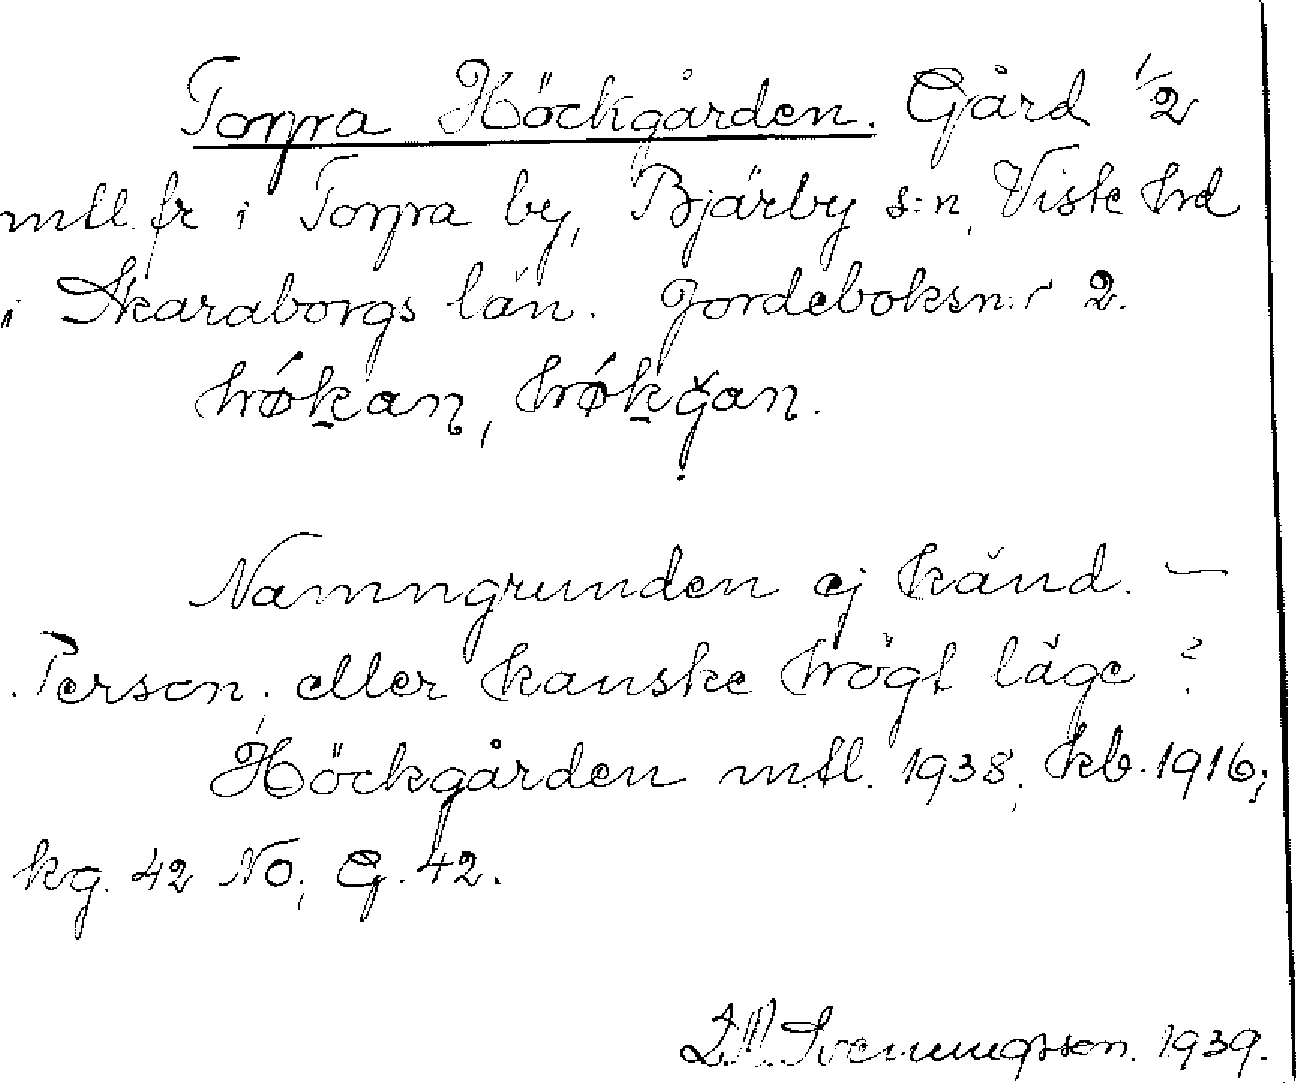 Torpa Höckgården. Gård 1/2
mtl. fr i Torpa by, Bjärby s:n, Viste hrd
i Skaraborgs län. Jordeboksn:r 2.
hǿkan, hǿkǧan.
Namngrunden ej känd. —
Person, eller kanske högt läge?
Höckgården mtl. 1938; kb. 1916;
kg. 42 NO; G. 42.
Svenungsson. 1939.